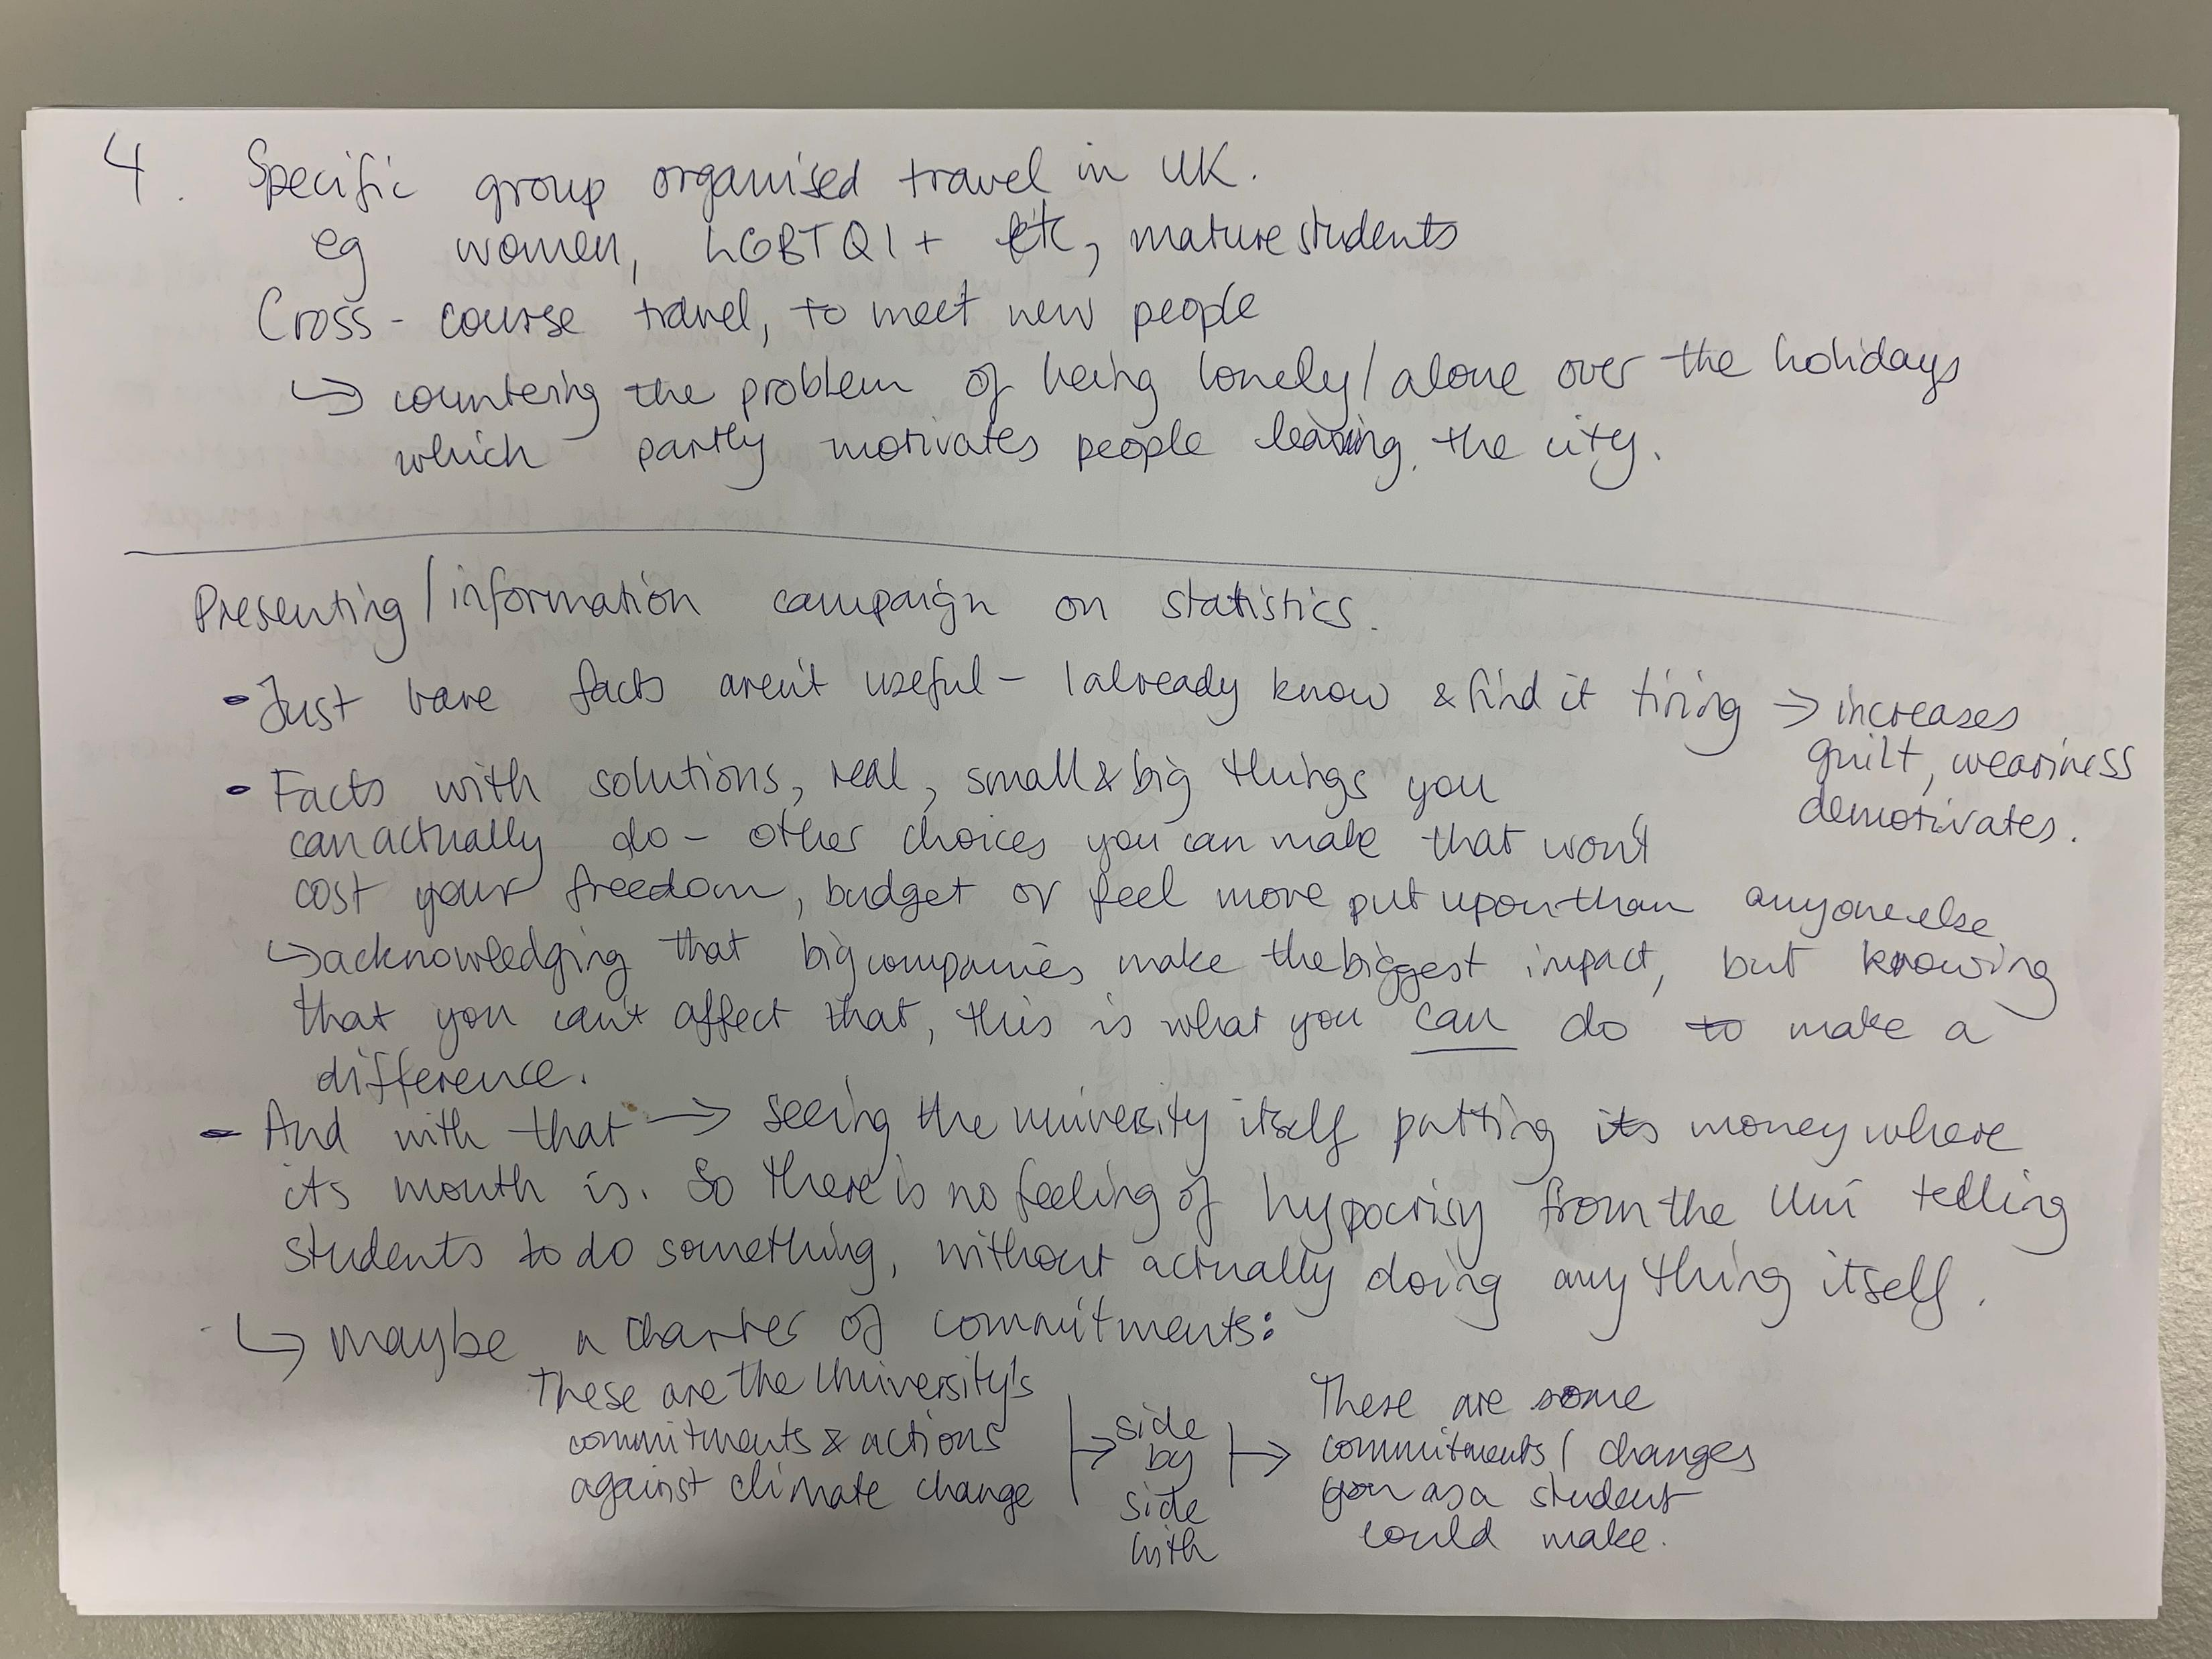 4. Specific group organised travel in UK.
eg women, LGBTQI+ etc, mature students
Cross-course travel, to meet new people
↳ countering the problem of being lonely/alone over the holidays
which partly motivates people leaving the city.
Presenting/information campaign on statistics.
- Just bare facts aren't useful - I already know & find it tiring → increases
guilt, weariness
demotivates.
- Facts with solutions, real, small & big things you
can actually do - other choices you can make that won't
cost your freedom, budget or feel more put upon than anyone else
↳ acknowledging that big companies make the biggest impact, but knowing
that you can't affect that, this is what you can do to make a
difference.
- And with that → seeing the university itself putting its money where
its mouth is. So there is no feeling of hypocrisy from the Uni telling
students to do something, without actually doing anything itself.
↳ maybe a charter of commitments:
These are the University's
commitments & actions
against climate change
→ side
by
side
with →
These are some
commitments/changes
you as a student
could make.